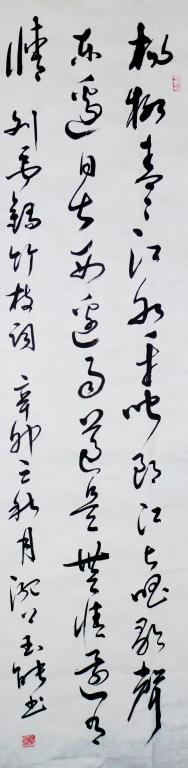 杨柳青々江水平吹郎江上唱歌声
东边日出西边雨道是无情还有
情刘禹锡竹枝词辛卯之秋月